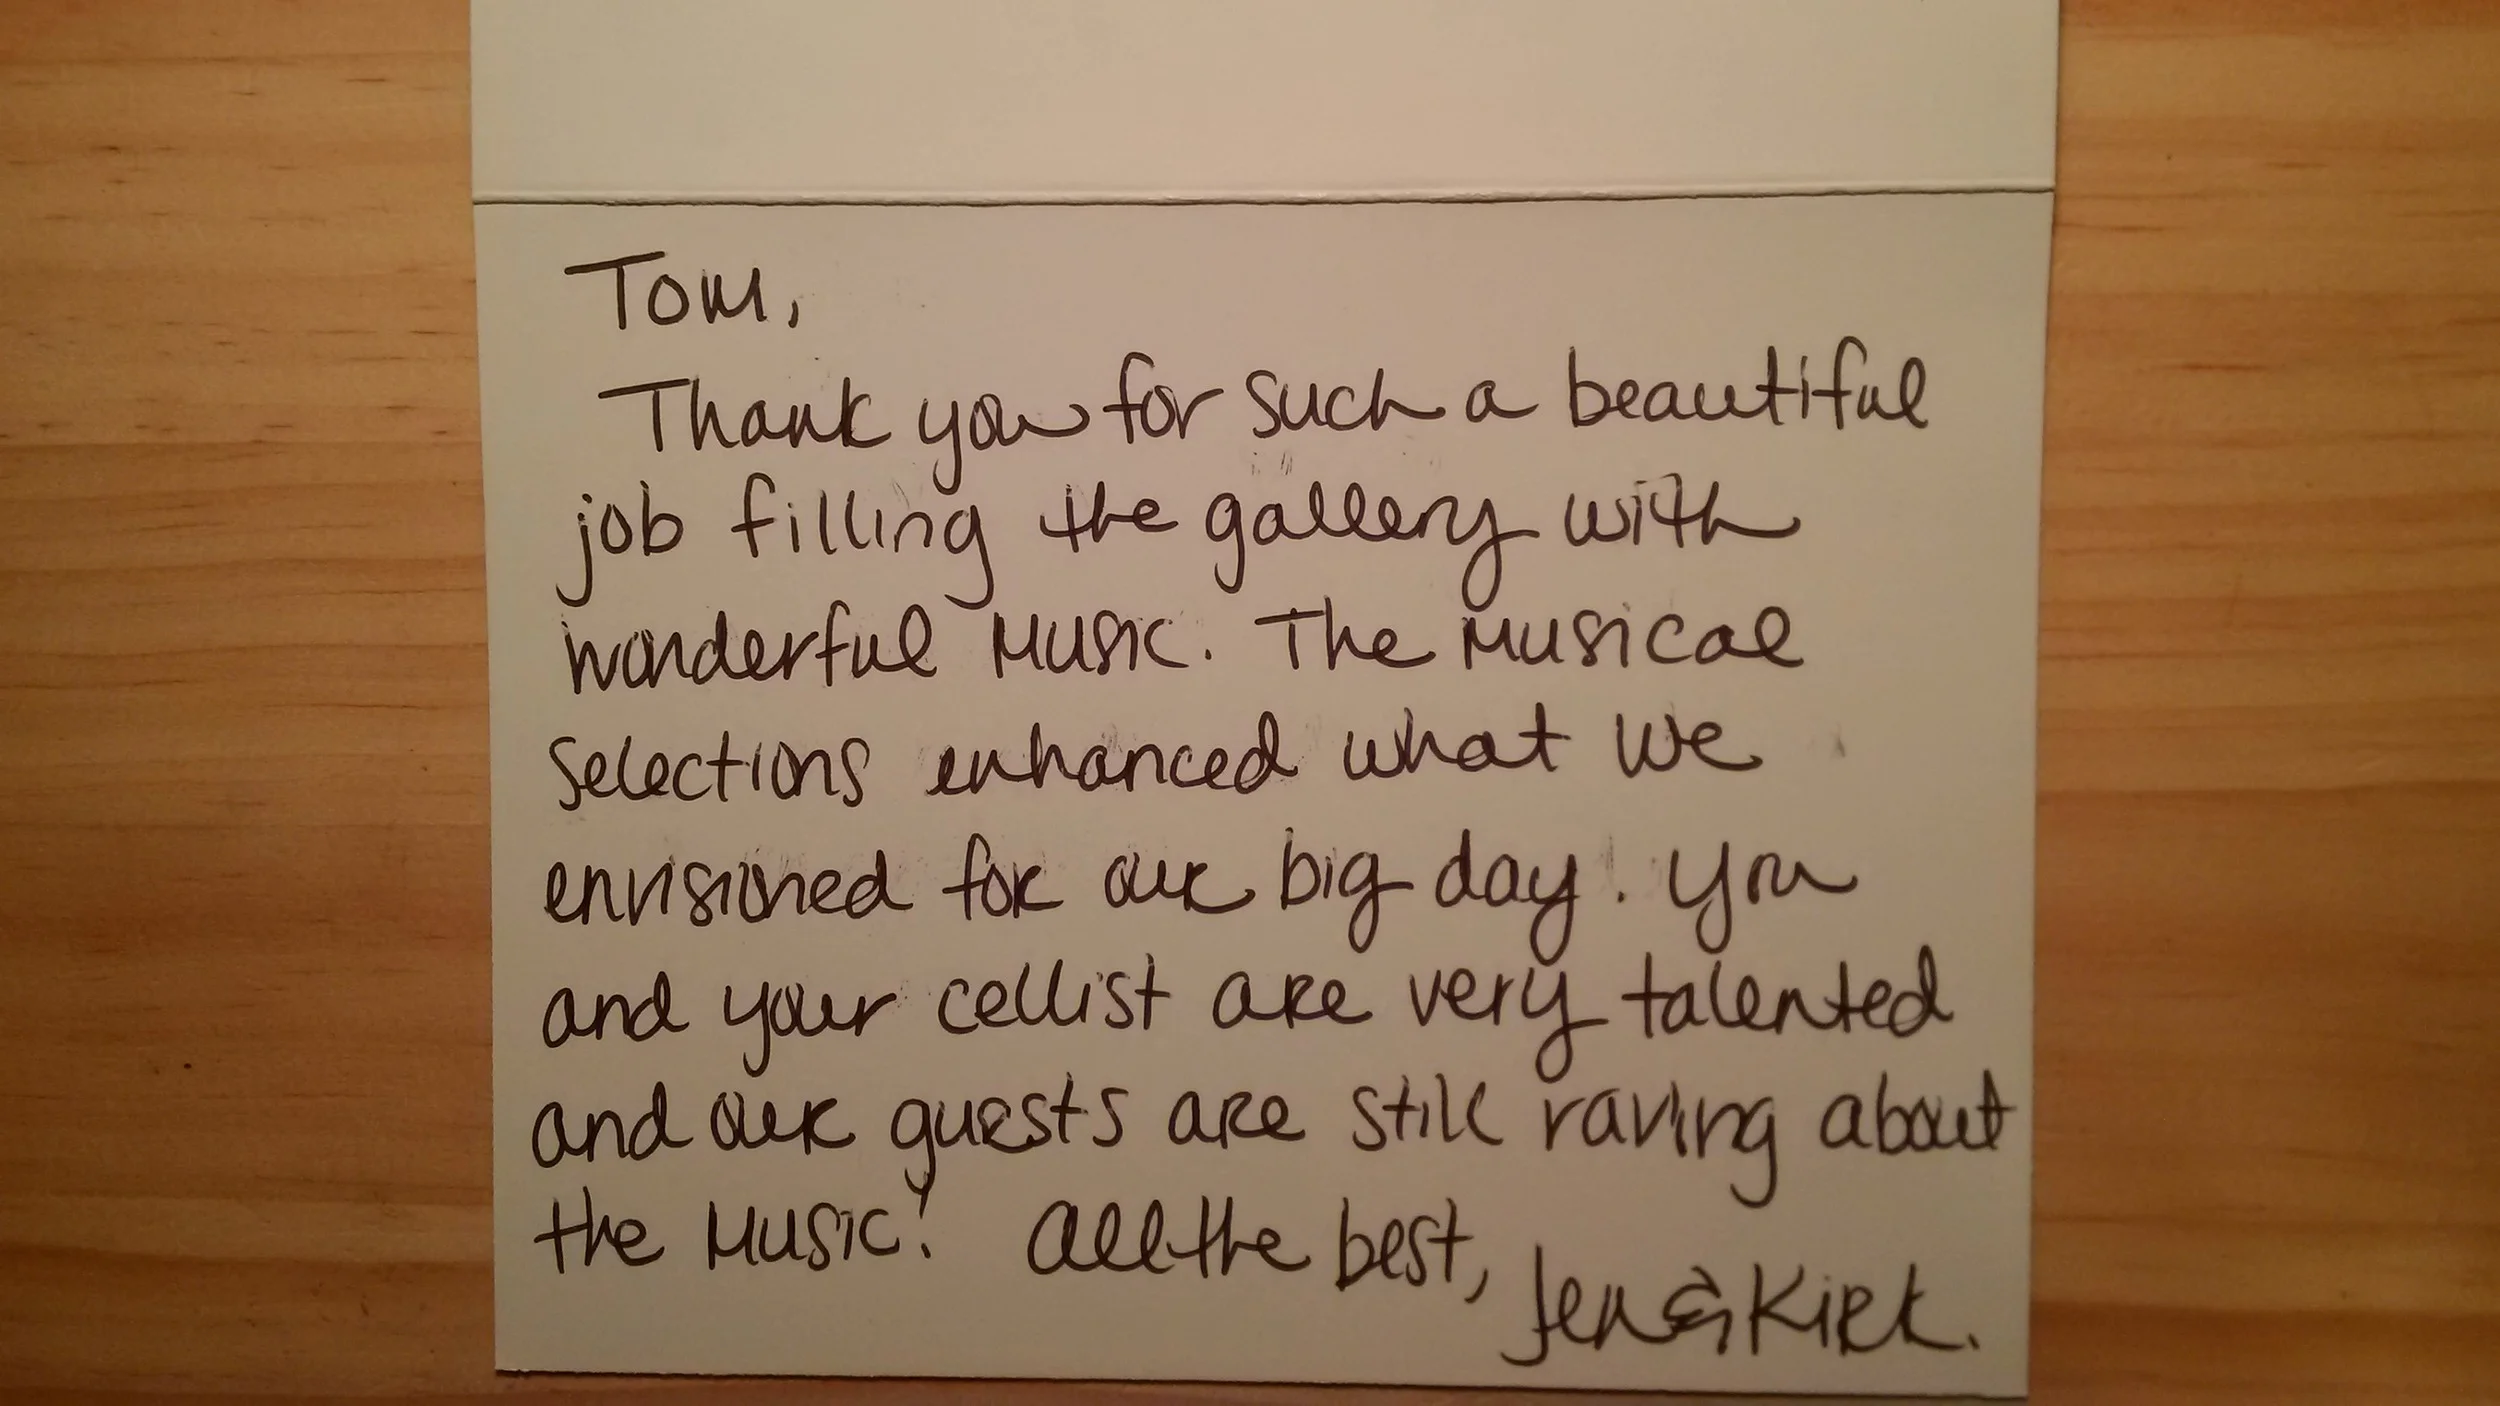 Tom,
Thank you for such a beautiful
job filling the gallery with
wonderful music. The musical
selections enhanced what we
envisioned for our big day. You
and your cellist are very talented
and our guests are still raving about
the music! All the best,
Jen & Kirk.